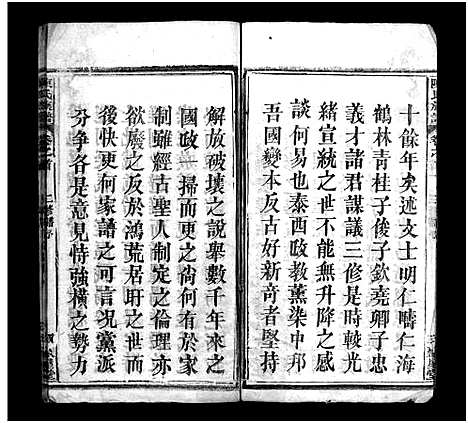 十餘年矣述文士明仁疇仁海
鶴林青桂子俊子欽堯卿子忠
義才諸君謀議三修是時較光
緒宣統之世不能無升降之感
談何易也泰西政教薰染中邦
吾國變本反古好新奇者堅持
解放破壞之說舉數千年來之
國政一掃而更之尙何有於家
制雖經古聖人制定之倫理亦
欲廢之反於鴻荒居盱之世
後快更何家譜之可言况黨派
分爭各是意見恃強橫之勢力